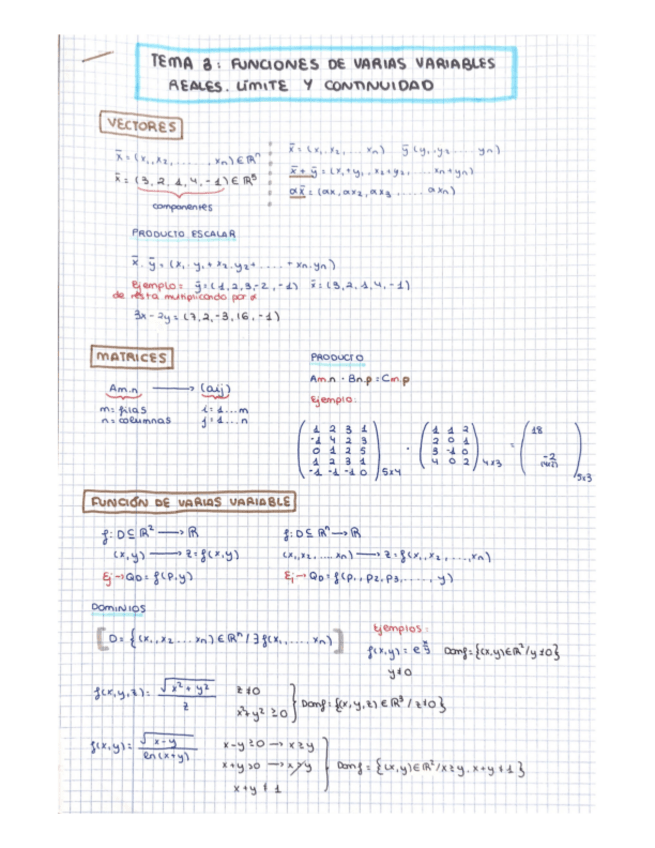 TEMA 3: FUNCIONES DE VARIAS VARIABLES
REALES. LÍMITE Y CONTINUIDAD
VECTORES
x̄ = (x₁, x₂, ......, xn) ∈ ℝⁿ
x̄ = (3, 2, 1, 4, -1) ∈ ℝ⁵
componentes
x̄ = (x₁, x₂, ... xn) ȳ (y₁, y₂ ... yn)
x̄ + ȳ = (x₁+y₁, x₂+y₂, ... xn+yn)
αx̄ = (αx, αx₂, αx₃, ..... αxn)
PRODUCTO ESCALAR
x̄ · ȳ = (x₁ · y₁ + x₂ · y₂ + .... + xn · yn)
Ejemplo: ȳ = (1, 2, 3, -2, -1) x̄ = (3, 2, 1, 4, -1)
de resta multiplicando por α
3x - 2y = (7, 2, -3, 16, -1)
MATRICES
Am.n ⟶ (aij)
m = filas i = 1...m
n = columnas j = 1...n
PRODUCTO
Am.n · Bn.p = Cm.p
Ejemplo:
1 2 3 1
-1 4 2 3
0 1 2 5
1 2 3 1
-1 -1 -1 0
5x4
·
1 1 2
2 0 1
3 -1 0
4 0 2
4x3
=
18
-2
5x3
FUNCIÓN DE VARIAS VARIABLE
f: D ⊆ ℝ² ⟶ ℝ
(x, y) ⟶ z = f(x, y)
Ej → QD = f(P, y)
f: D ⊆ ℝⁿ ⟶ ℝ
(x₁, x₂, .... xn) ⟶ z = f(x₁, x₂, ...., xn)
Ej → QD = f(P₁, P2, P3, ......, y)
DOMINIOS
[D = {(x₁, x₂ ... xn) ∈ ℝⁿ / ∃ f(x₁, ..... xn)}]
Ejemplos:
f(x, y) = e^(x/y) Domf = {(x, y) ∈ ℝ² / y ≠ 0}
y ≠ 0
f(x, y, z) = √(x² + y²) / z
z ≠ 0
x² + y² ≥ 0
Domf = {(x, y, z) ∈ ℝ³ / z ≠ 0}
f(x, y) = √(x - y) / en(x + y)
x - y ≥ 0 → x ≥ y
x + y > 0 → x > y
x + y ≠ 1
Domf = {(x, y) ∈ ℝ² / x ≥ y, x + y ≠ 1}